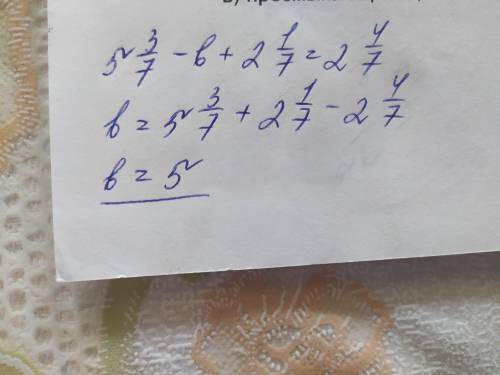 5 3/7 - в + 2 1/7 = 2 4/7
в = 5 3/7 + 2 1/7 - 2 4/7
в = 5